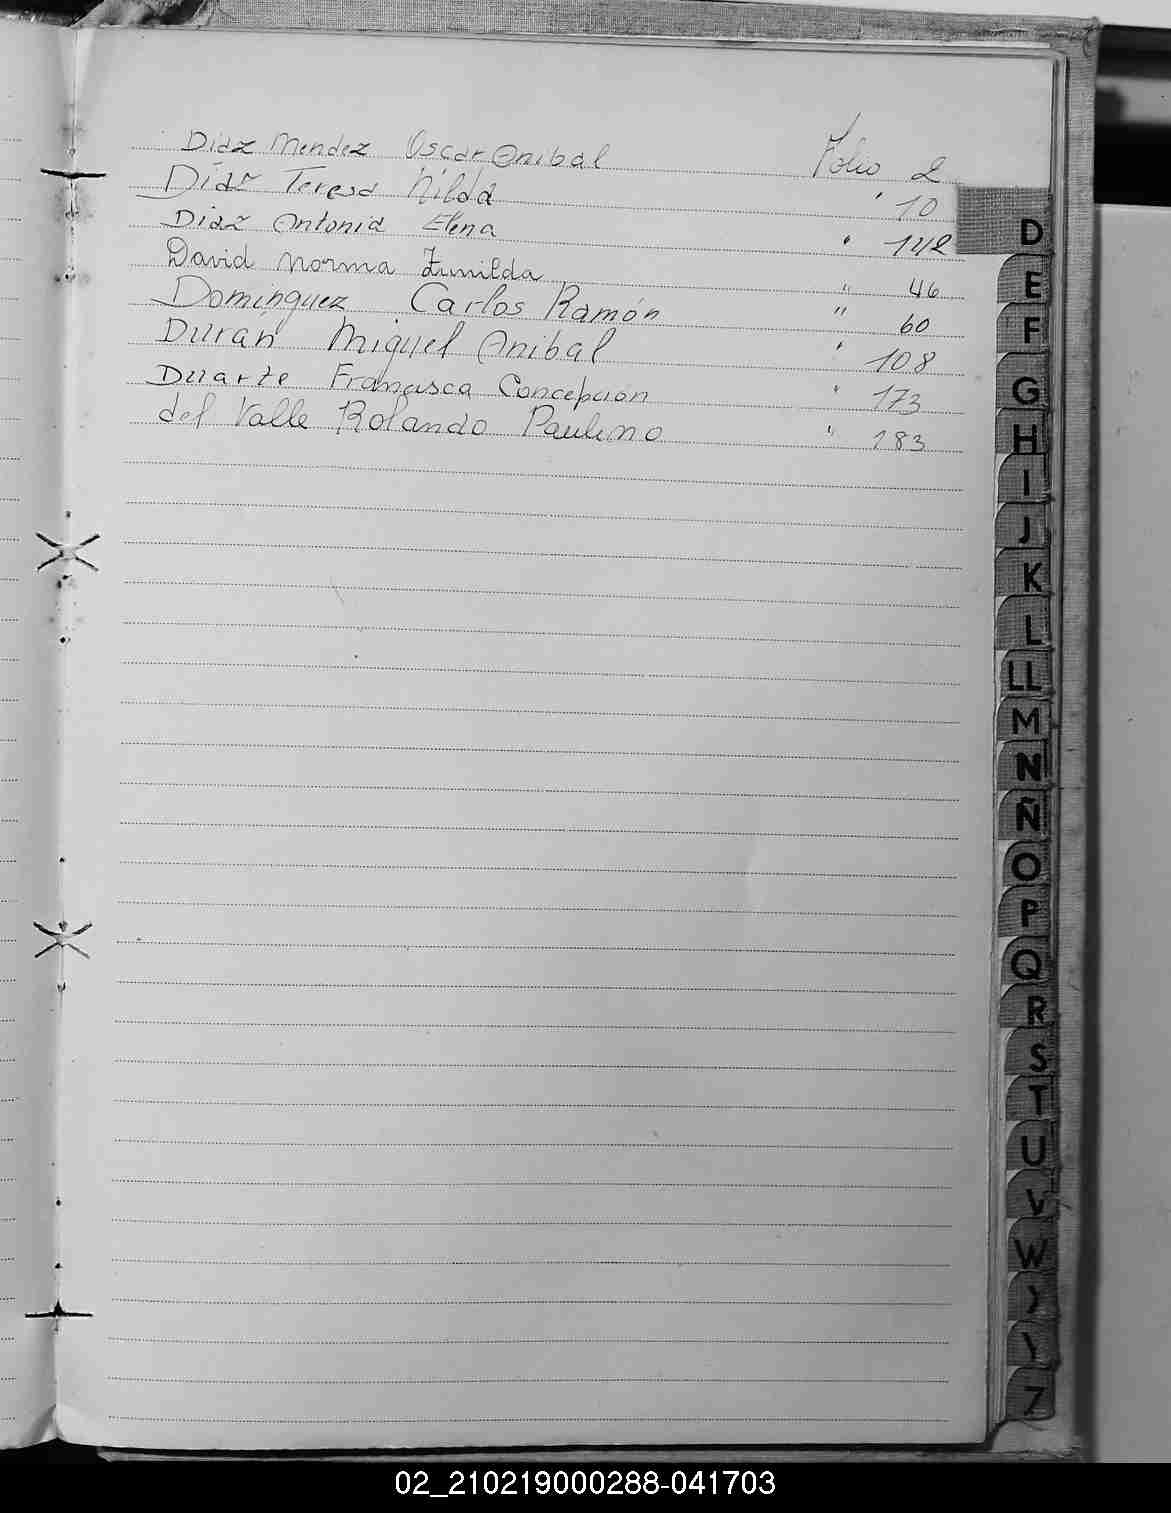 Diaz Mendez Oscar Anibal Folio 2
Díaz Teresa Nilda " 10
Diaz Antonia Elena " 142
David Norma Zunilda " 46
Domínguez Carlos Ramón " 60
Durán Miguel Anibal " 108
Duarte Francisca Concepción " 173
del Valle Rolando Paulino " 183
D
E
F
G
H
I
J
K
L
LL
M
N
Ñ
O
P
Q
R
S
T
U
V
W
Z
02_210219000288-041703